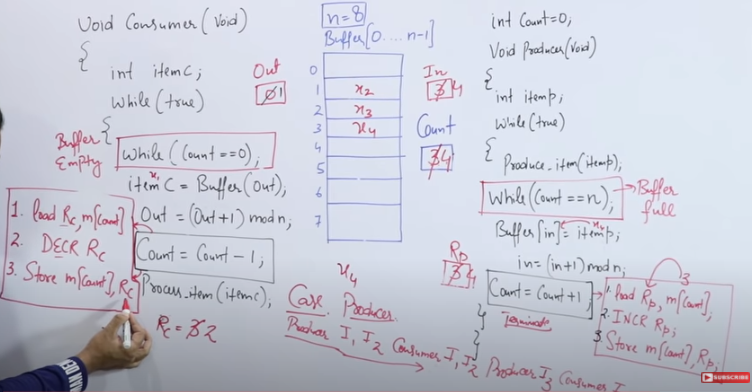 Void Consumer (void)
{
int itemC;
while(true)
{
Buffer
Empty
while( count==0);
x1
itemC = Buffer(Out);
Out = (Out+1) mod n;
Count = Count - 1;
Process_item(itemC);
}
1. load Rc, m[count]
2. DECR Rc
3. Store m[count], Rc
Rc = 3 2
n=8
Buffer[0....n-1]
Out
0 1
0
1 x2
2 x3
3 x4
4
5
6
7
In
3 4
Count
3 4
Rp
3 4
x4
Case Producer
Producer I1 I2 Consumer I1, I2 Producer I3 Consumer I
int Count=0;
Void Producer(void)
{
int itemp;
while(true)
{
Produce_item(itemp);
while(Count==n);
Buffer
full
x4
Buffer[in]=itemp;
in=(in+1)mod n;
Count = Count+1;
Terminate
}
}
3
1. load Rp, m[count];
2. INCR Rp;
3. Store m[count], Rp;
SUBSCRIBE